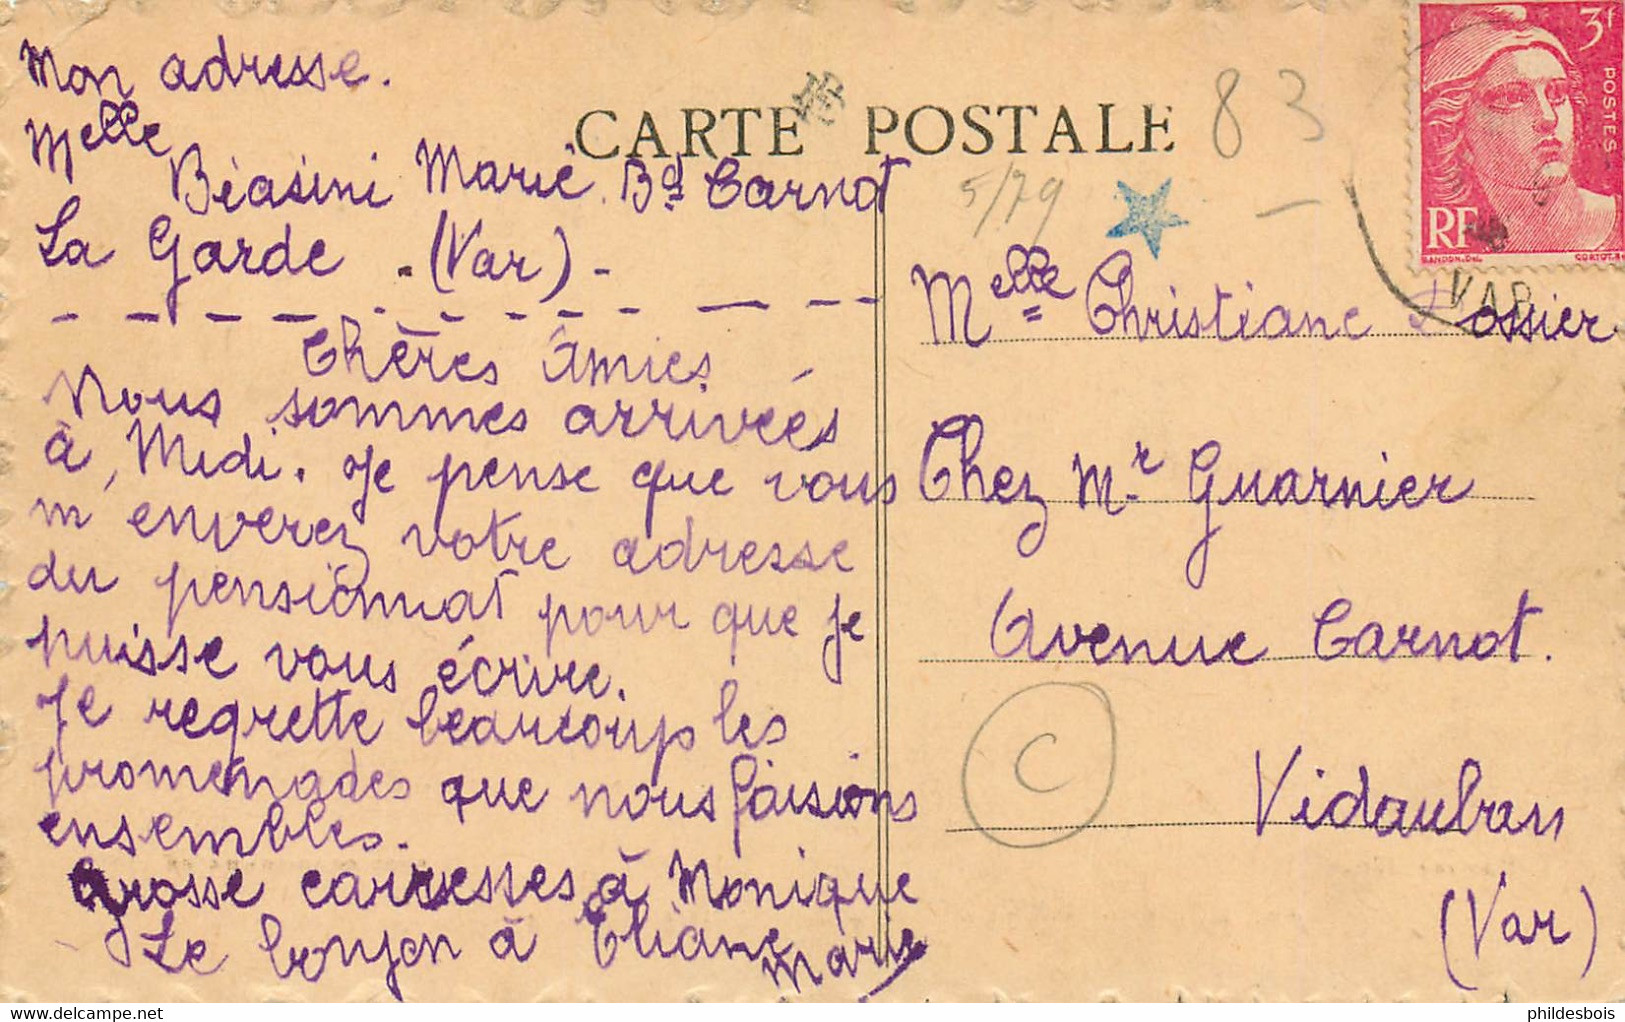 Mon adresse.
Melle
Biasini Marie. Bd Carnot
La Garde . (Var) -
Chères Amies
Nous sommes arrivées
à Midi. Je pense que vous
m'enverez votre adresse
du pensionnat pour que je
puisse vous écrire.
Je regrette beaucoup les
promenades que nous faisions
ensembles.
Grosse caresses à Monique
Le bonjon à Eliane
Marie
CARTE POSTALE
83
5/79
3f
POSTES
RF
GANDON.DEL.
CORTOT.
VAR
Melle Christiane Rossier
Chez Mr Guarnier
Avenue Carnot.
Vidauban
(Var)
C
phildesbois